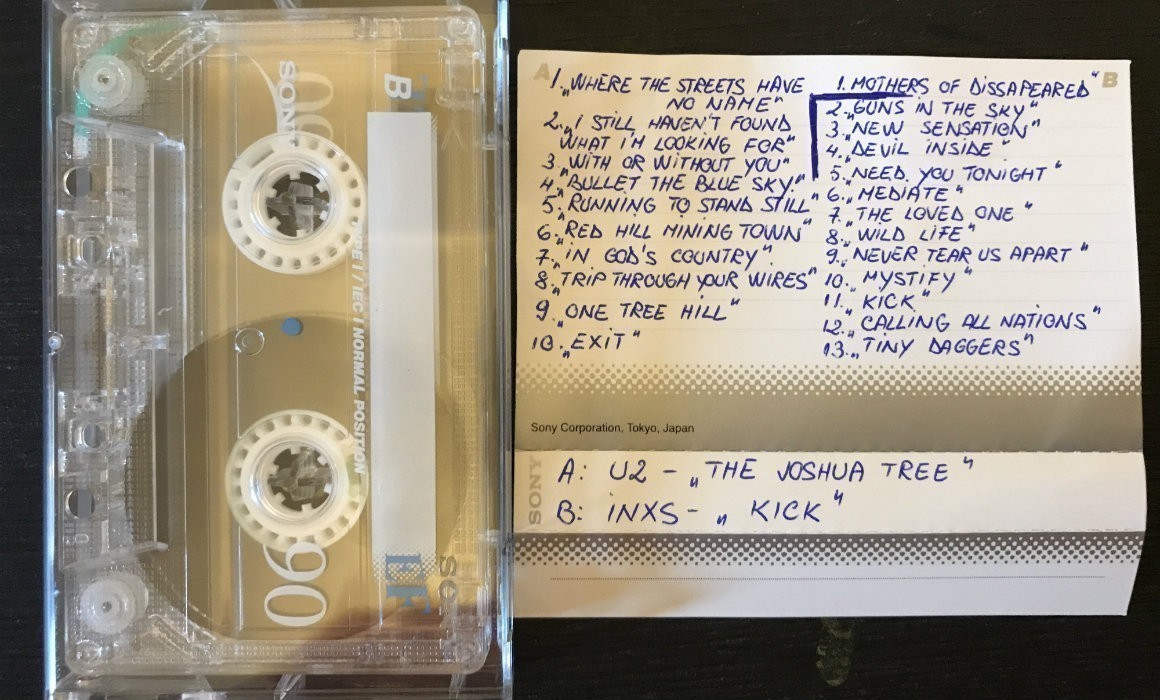 SONY
B
TYPE I / IEC I NORMAL POSITION
90
EF
A
1. „WHERE THE STREETS HAVE
NO NAME"
2. „I STILL HAVEN'T FOUND
WHAT I'M LOOKING FOR"
3. „WITH OR WITHOUT YOU"
4. „BULLET THE BLUE SKY"
5. „RUNNING TO STAND STILL"
6. „RED HILL MINING TOWN"
7. „IN GOD'S COUNTRY"
8. „TRIP THROUGH YOUR WIRES"
9. „ONE TREE HILL"
10. „EXIT"
B
1. MOTHERS OF DISSAPEARED"
2. „GUNS IN THE SKY"
3. „NEW SENSATION"
4. „DEVIL INSIDE"
5. „NEED YOU TONIGHT"
6. „MEDIATE"
7. „THE LOVED ONE"
8. „WILD LIFE"
9. „NEVER TEAR US APART"
10. „MYSTIFY"
11. „KICK"
12. „CALLING ALL NATIONS"
13. „TINY DAGGERS"
Sony Corporation, Tokyo, Japan
SONY
A: U2 - „THE JOSHUA TREE"
B: INXS - „KICK"